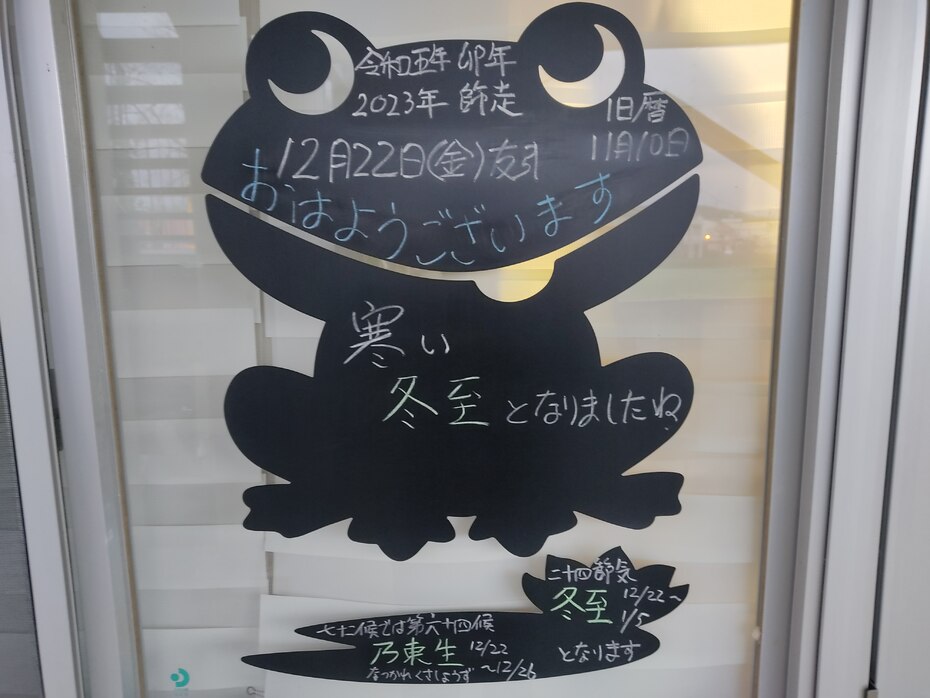 令和五年 卯年
2023年 師走
旧暦
11月10日
12月22日(金)友引
おはようございます
寒い
冬至となりましたね
二十四節気
冬至 12/22〜
1/5
となります
七十二候では第六十四候
乃東生 12/22
〜12/26
なつかれくさしょうず